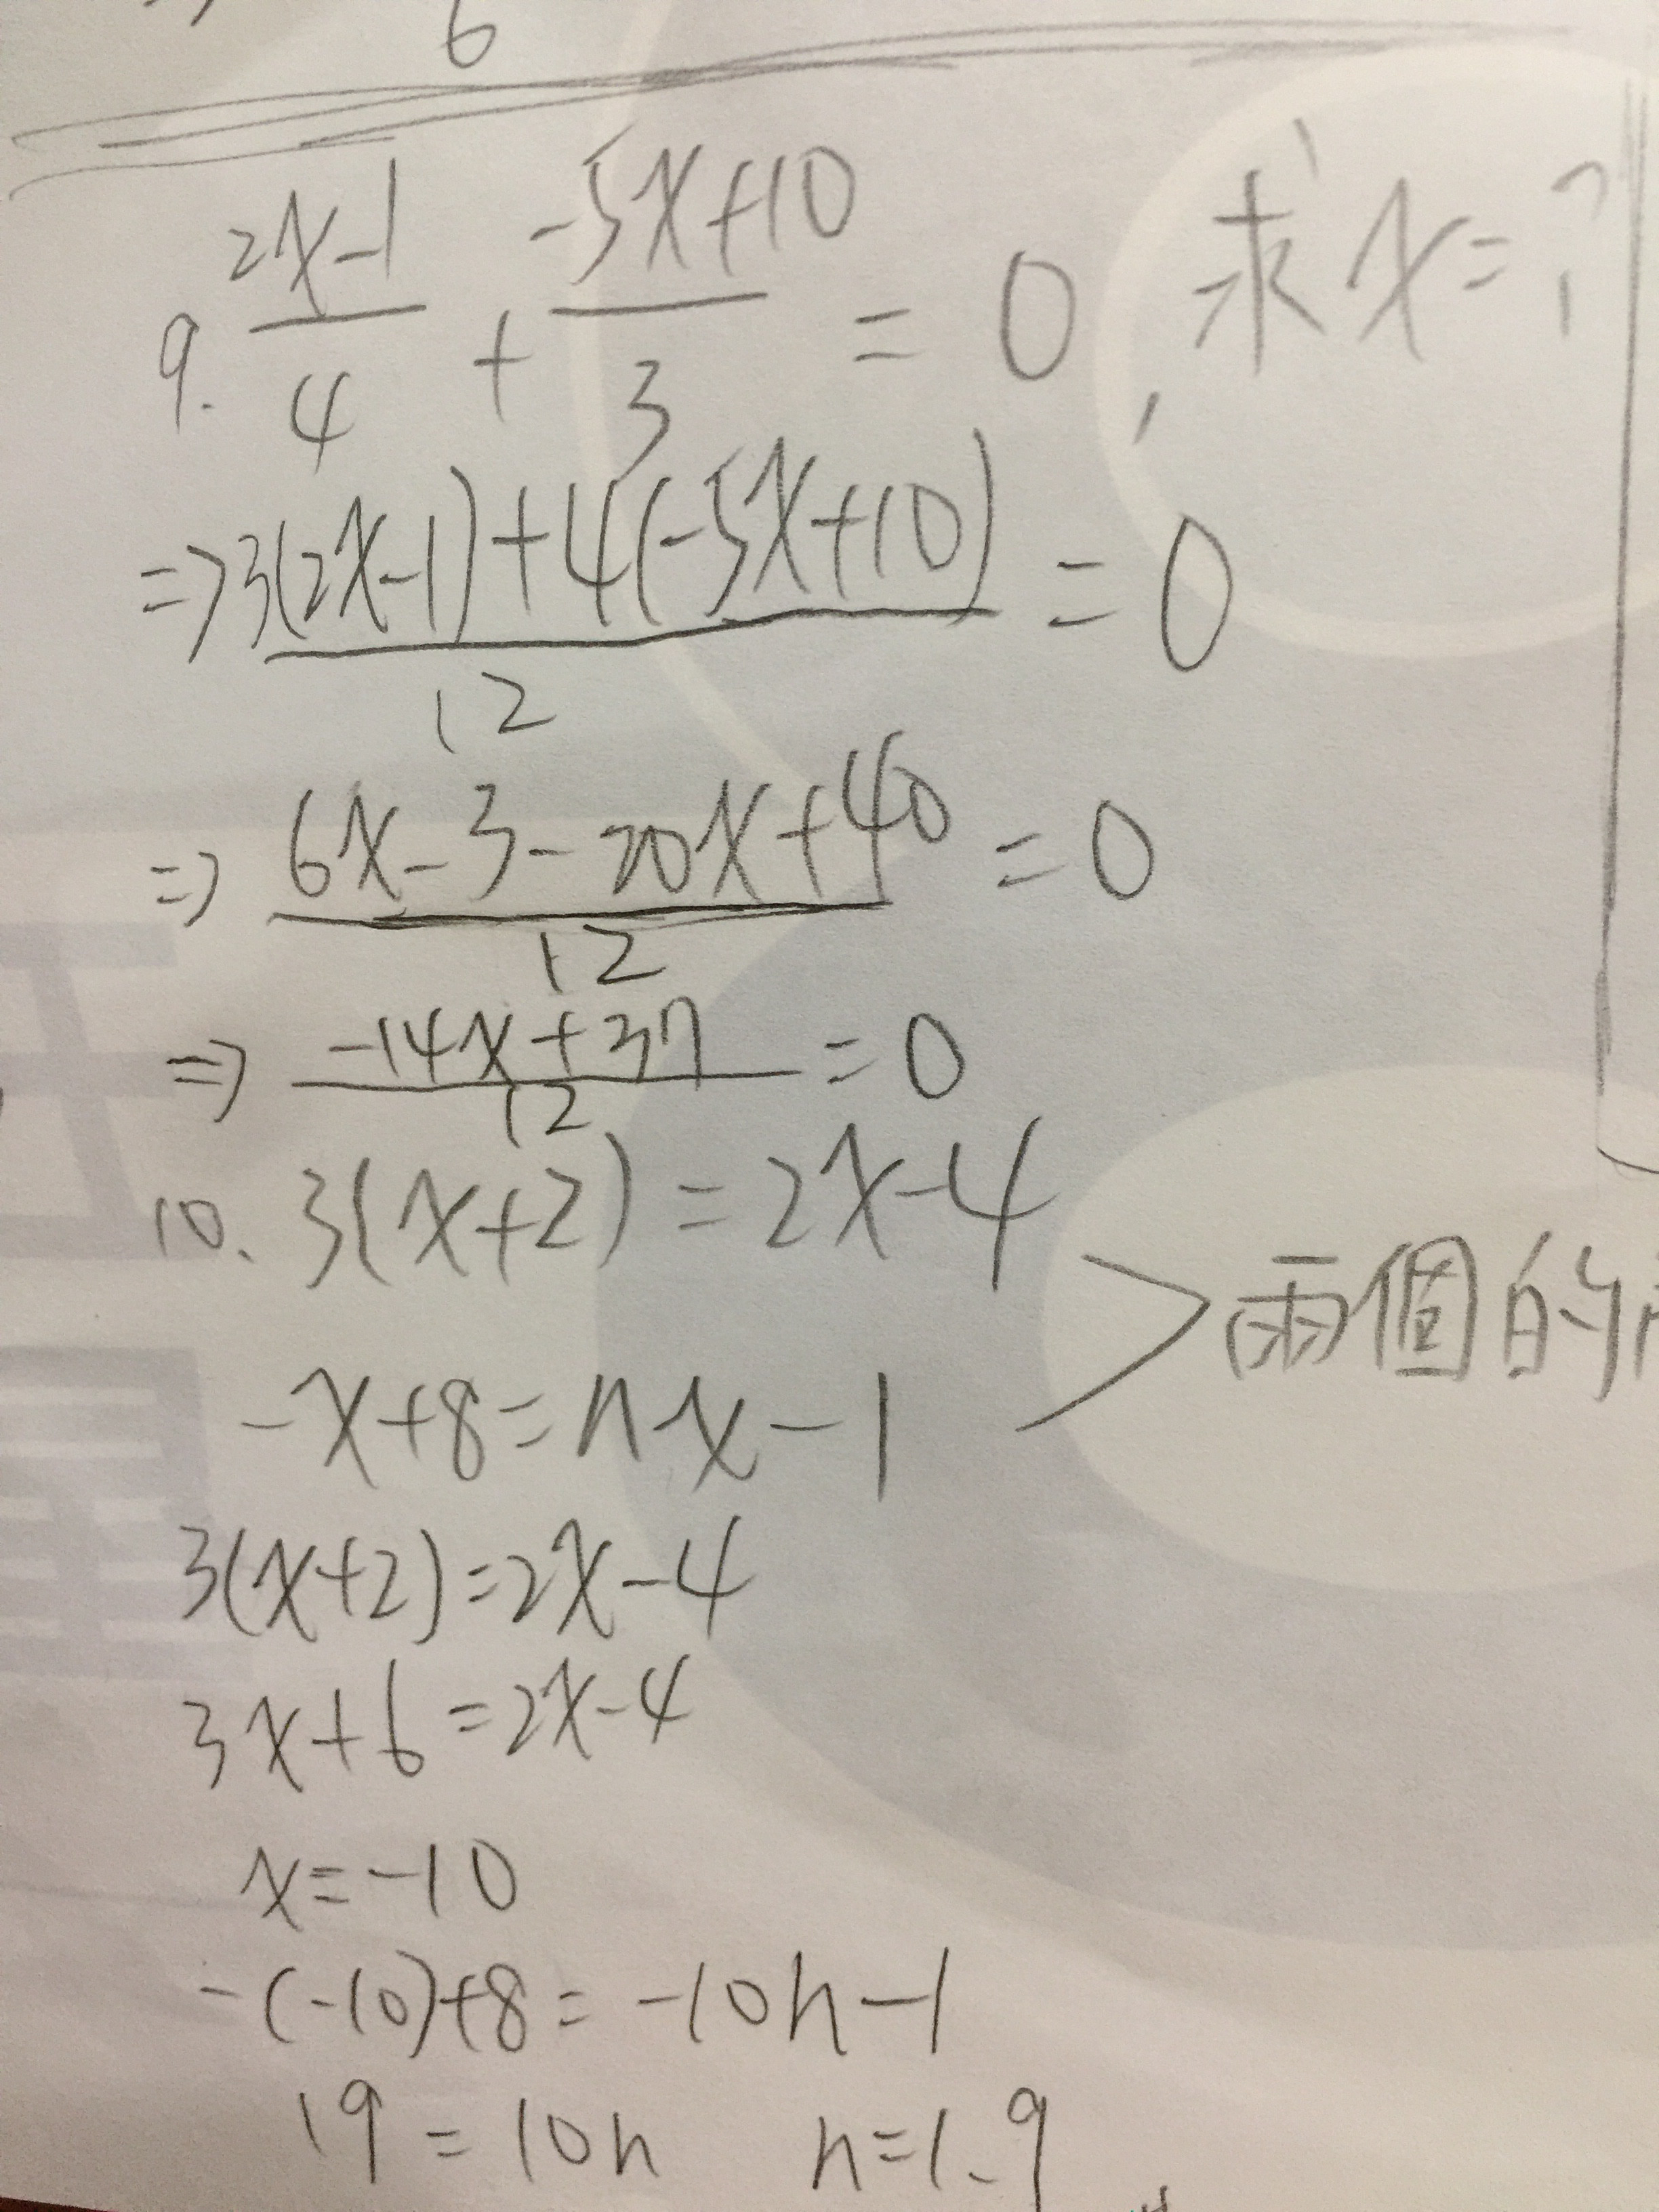 6
9. (2x-1)/4 + (-5x+10)/3 = 0, 求x=?
=> (3(2x-1)+4(-5x+10))/12 = 0
=> (6x-3-20x+40)/12 = 0
=> (-14x+37)/12 = 0
10. 3(x+2)=2x-4
兩個的
-x+8=nx-1
3(x+2)=2x-4
3x+6=2x-4
x=-10
-(-10)+8=-10n-1
19=10n n=1.9